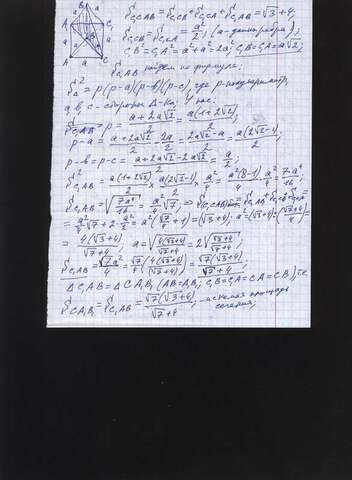 B₁
A₁ C₁
a a
B
A C
a
S C₁CAB = S C₁CA + S C₁CB + S CAB = √3+4,
S C₁CB = S C₁CA = a²/2; (a - длина ребра);
C₁B² = C₁A² = a²+a² = 2a²; C₁B = C₁A = a√2;
S C₁AB найдем по формуле:
S²Δ = p(p-a)(p-b)(p-c), где p - полупериметр,
a, b, c - стороны Δ-ка; У нас:
p = (a+2a√2)/2 = a(1+2√2)/2;
p-a = (a+2a√2)/2 - 2a/2 = (2a√2-a)/2 = a(2√2-1)/2;
p-b = p-c = (a+2a√2-2a√2)/2 = a/2;
S² C₁AB = a(1+2√2)/2 × a(2√2-1)/2 · a²/4 = a²(8-1)/4 · a²/4 = 7·a⁴/16
S C₁AB = √(7a⁴/16) = a²/4 √7
= a²/4 √7 + 2·a²/2 = a²(√7/4+1) = (√3+4); a² = (√3+4) : (√7+4)/4 =
= 4(√3+4)/(√7+4); a = √(4(√3+4)/(√7+4)) = 2√((√3+4)/(√7+4));
S C₁AB = √7a²/4 = √7/4 (4(√3+4)/(√7+4)) = √7(√3+4)/(√7+4);
Δ C₁AB = Δ CA₁B₁ (AB = A₁B₁; C₁B = C₁A = CA₁ = CB₁), т.е.
S CA₁B₁ = S C₁AB = √7(√3+4)/(√7+4) - искомая площадь
сечения;